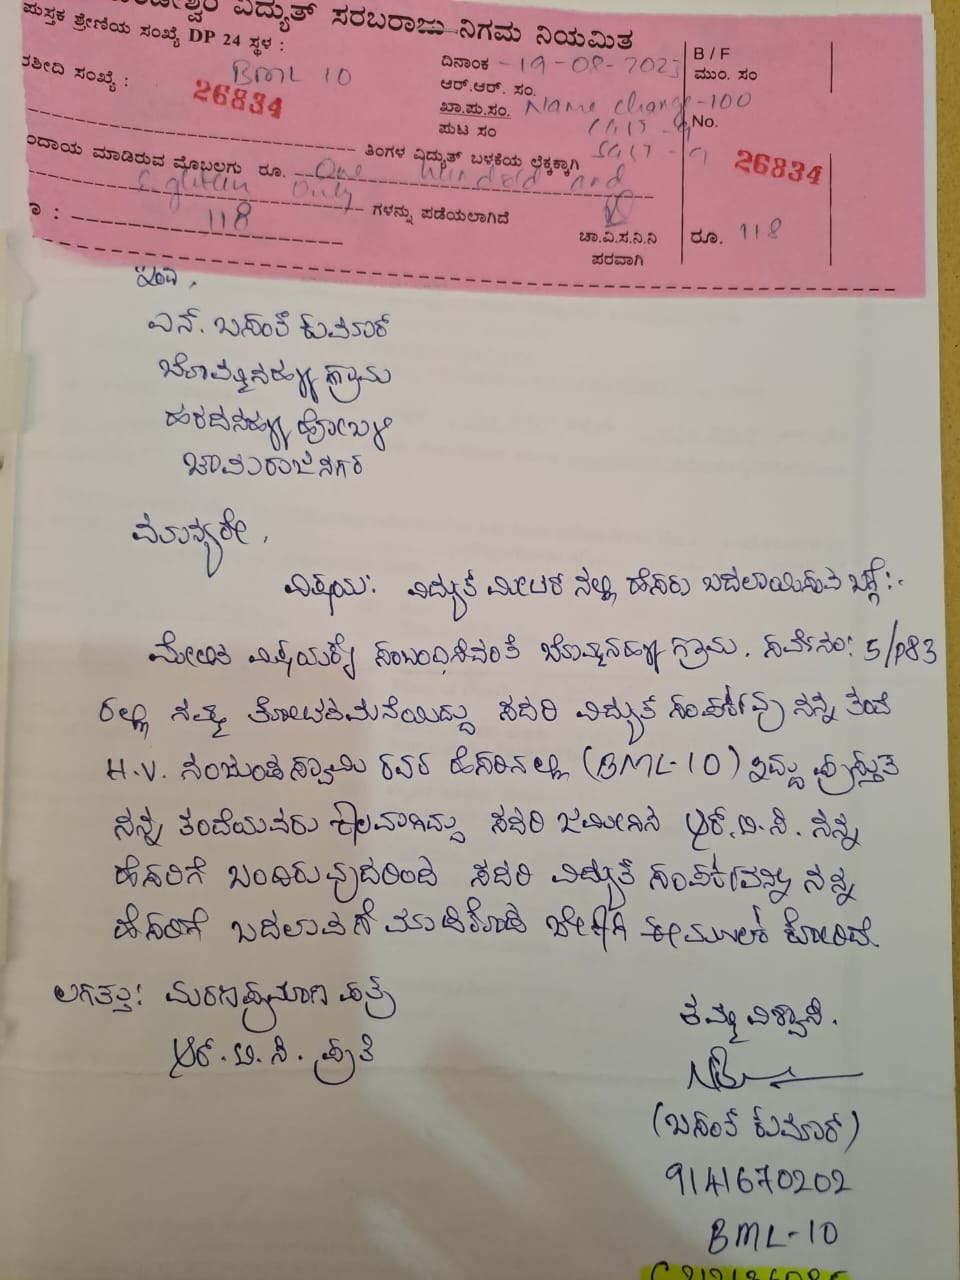 ವಿದ್ಯುತ್ ಸರಬರಾಜು ನಿಗಮ ನಿಯಮಿತ
ಪುಸ್ತಕ ಶ್ರೇಣಿಯ ಸಂಖ್ಯೆ DP 24 ಸ್ಥಳ :
BML 10
ಸಂಖ್ಯೆ : 26834
ದಿನಾಂಕ - 19-08-2023
ಆರ್.ಆರ್. ಸಂ.
ಖಾ.ಪು.ಸಂ. Name change - 100
ಪುಟ ಸಂ CGST - 9
ತಿಂಗಳ ವಿದ್ಯುತ್ ಬಳಕೆಯ ಲೆಕ್ಕಕ್ಕಾಗಿ SGST - 9
ಮಾಡಿರುವ ಮೊಬಲಗು ರೂ. One hundred and
Only ಗಳನ್ನು ಪಡೆಯಲಾಗಿದೆ
118
ಚಾ.ವಿ.ಸ.ನಿ.ನಿ
ಪರವಾಗಿ
B / F
ಮುಂ. ಸಂ
No.
26834
ರೂ. 118
ಇಂದ,
ಎನ್. ಬಸಂತ್ ಕುಮಾರ್
ಬೊಮ್ಮನಹಳ್ಳಿ ಗ್ರಾಮ
ಹರದನಹಳ್ಳಿ ಹೋಬಳಿ
ಚಾಮರಾಜನಗರ
ಮಾನ್ಯರೇ,
ವಿಷಯ: ವಿದ್ಯುತ್ ಮೀಟರ್ ನಲ್ಲಿ ಹೆಸರು ಬದಲಾಯಿಸುವ ಬಗ್ಗೆ:-
ಮೇಲಿನ ವಿಷಯಕ್ಕೆ ಸಂಬಂಧಿಸಿದಂತೆ ಬೊಮ್ಮನಹಳ್ಳಿ ಗ್ರಾಮ. ಸರ್ವೆನಂ: 5/P83
ರಲ್ಲಿ ನಮ್ಮ ತೋಟದಮನೆಯಿದ್ದು ಸದರಿ ವಿದ್ಯುತ್ ಸಂಪರ್ಕವು ನನ್ನ ತಂದೆ
H.V. ನಂಜುಂಡಸ್ವಾಮಿ ರವರ ಹೆಸರಿನಲ್ಲಿ (BML-10) ಇದ್ದು ಪ್ರಸ್ತುತ
ನನ್ನ ತಂದೆಯವರು ಕಾಲವಾಗಿದ್ದು ಸದರಿ ಜಮೀನಿನ ಆರ್.ಟಿ.ಸಿ. ನನ್ನ
ಹೆಸರಿಗೆ ಬಂದಿರುವುದರಿಂದ ಸದರಿ ವಿದ್ಯುತ್ ಸಂಪರ್ಕವನ್ನು ನನ್ನ
ಹೆಸರಿಗೆ ಬದಲಾವಣೆ ಮಾಡಿಕೊಡ ಬೇಕಾಗಿ ಈಮೂಲಕ ಕೋರಿದೆ.
ಲಗತ್ತು: ಮರಣಪ್ರಮಾಣ ಪತ್ರ
ಆರ್.ಟಿ.ಸಿ. ಪ್ರತಿ
ತಮ್ಮ ವಿಶ್ವಾಸಿ.
(ಬಸಂತ್ ಕುಮಾರ್)
9141670202
BML-10